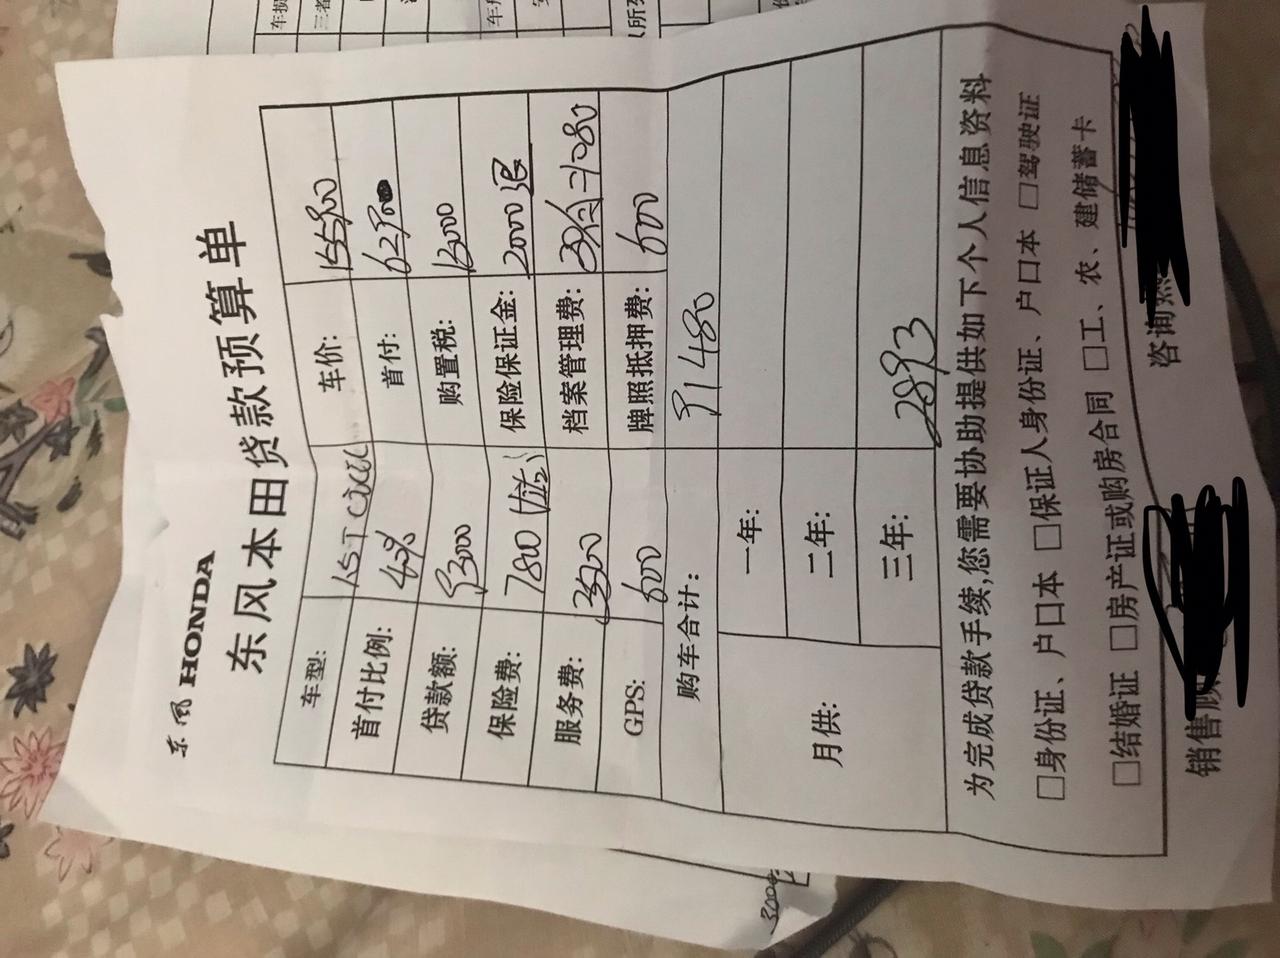 东风 HONDA
东风本田贷款预算单
车型: 1.5T 车价: 155800
首付比例: 40% 首付: 62800
贷款额: 93000 购置税: 13000
保险费: 7800 保险保证金: 2000 退
服务费: 3500 档案管理费: 1080
GPS: 600 牌照抵押费: 600
购车合计: 91480
月供: 一年:
二年:
三年: 2893
为完成贷款手续,您需要协助提供如下个人信息资料
□身份证、户口本 □保证人身份证、户口本 □驾驶证
□结婚证 □房产证或购房合同 □工、农、建储蓄卡
销售顾 咨询热
3000
车损
三者